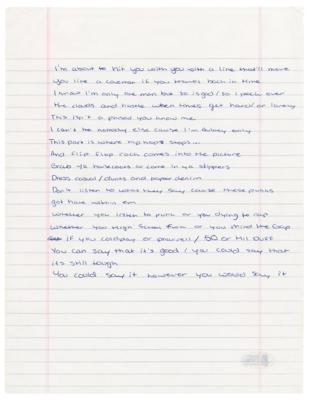 I'm about to hit you with you with a line that'll move
you like a caveman if you travel back in time
I know I'm only one man but so is god / so I peek over
the clouds and hustle when times get hard / or lonely
This isn't a phased you know me
I can't be nobody else cause I'm Aubrey only
This part is where hip hop stops...
And flip flop rock comes into the picture
Grab ya horsecoats or come in ya slippers
Dress casual / chunks and paper denim
Don't listen to what they say cause these punks
got hate within em
Whether you listen to punk or you dying to rap
Whether you High School Punk or you mind the Gap
if you coldplay or pharrell / 50 or Hil Duff
You can say that it's good / you could say that
its still tough
You could say it however you would say it